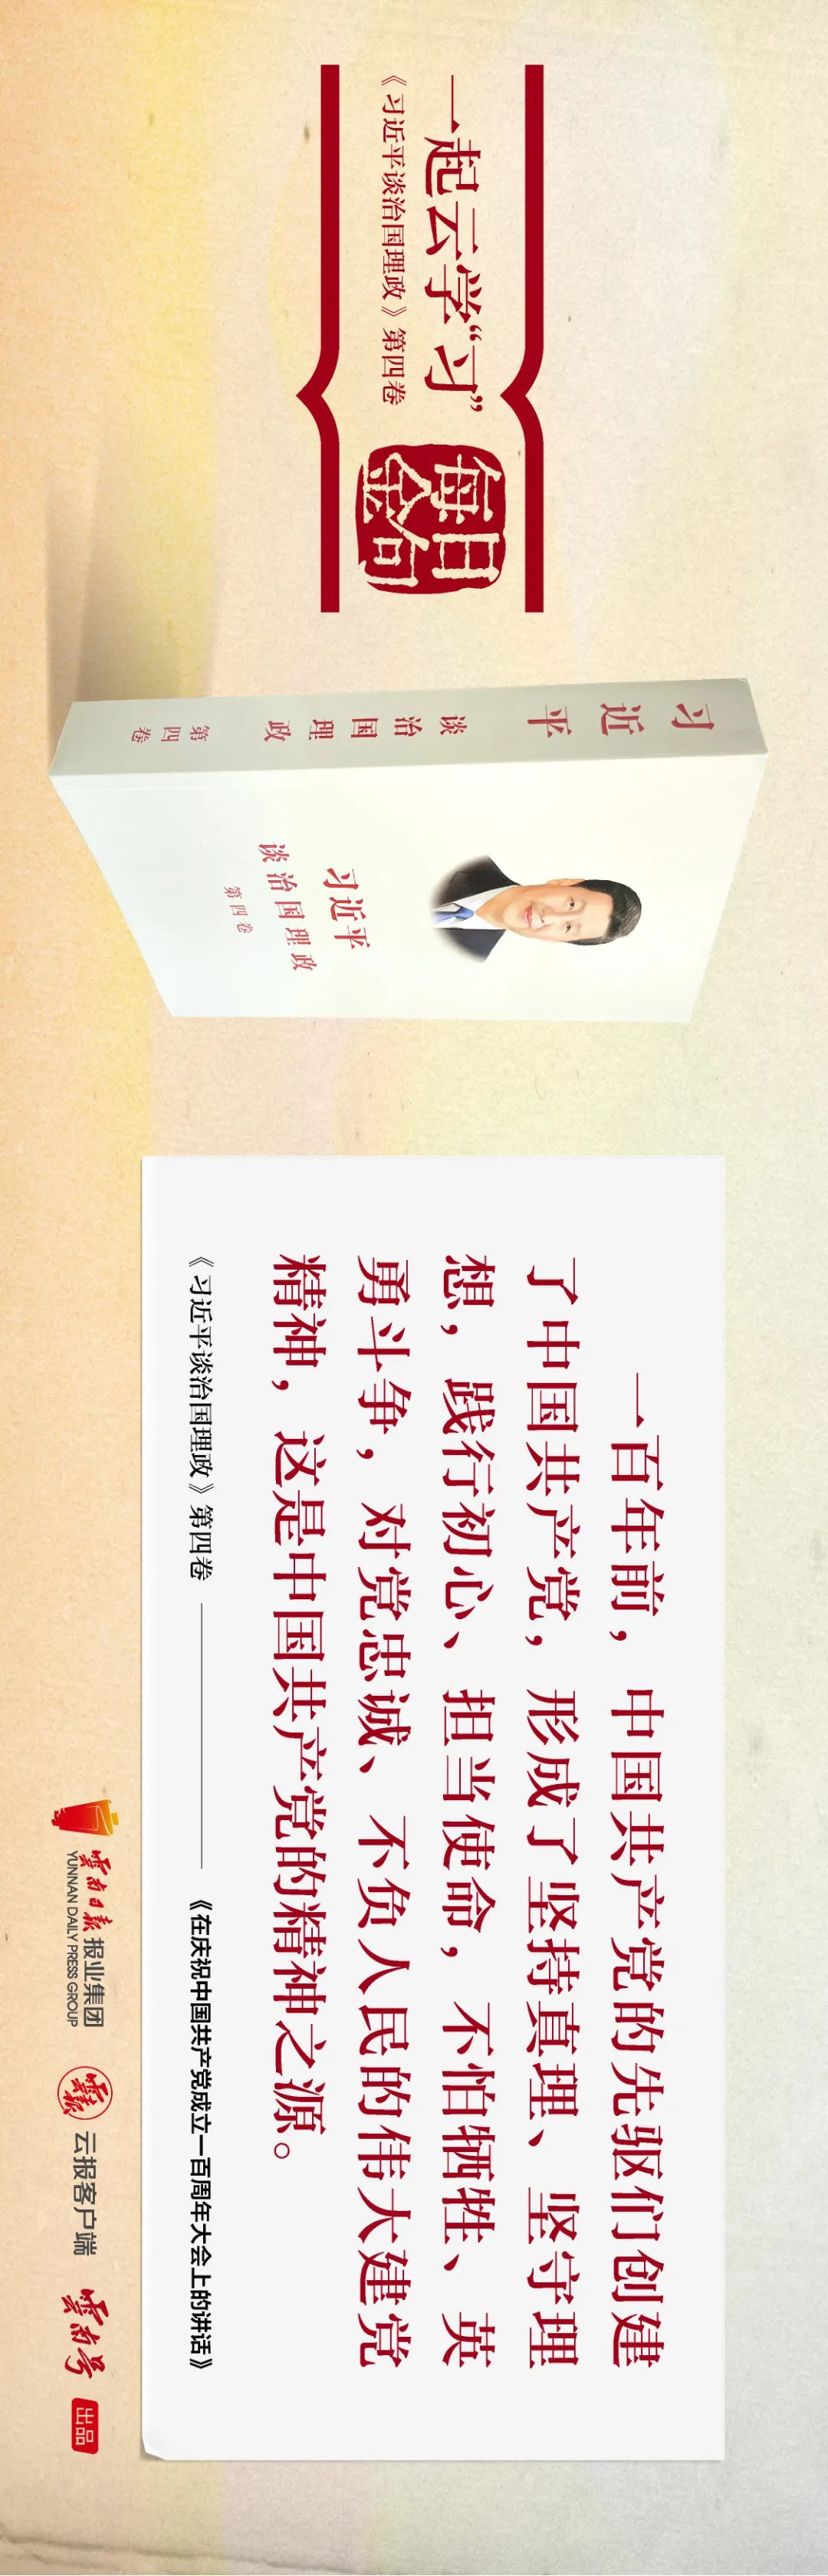 一起云学“习”
《习近平谈治国理政》第四卷
每日
金句
习近平 谈治国理政 第四卷
习近平
谈治国理政
第四卷
一百年前，中国共产党的先驱们创建
了中国共产党，形成了坚持真理、坚守理
想，践行初心、担当使命，不怕牺牲、英
勇斗争，对党忠诚、不负人民的伟大建党
精神，这是中国共产党的精神之源。
《习近平谈治国理政》第四卷 《在庆祝中国共产党成立一百周年大会上的讲话》
雲南日報 报业集团
YUNNAN DAILY PRESS GROUP
雲報
云报客户端
雲南号
出品